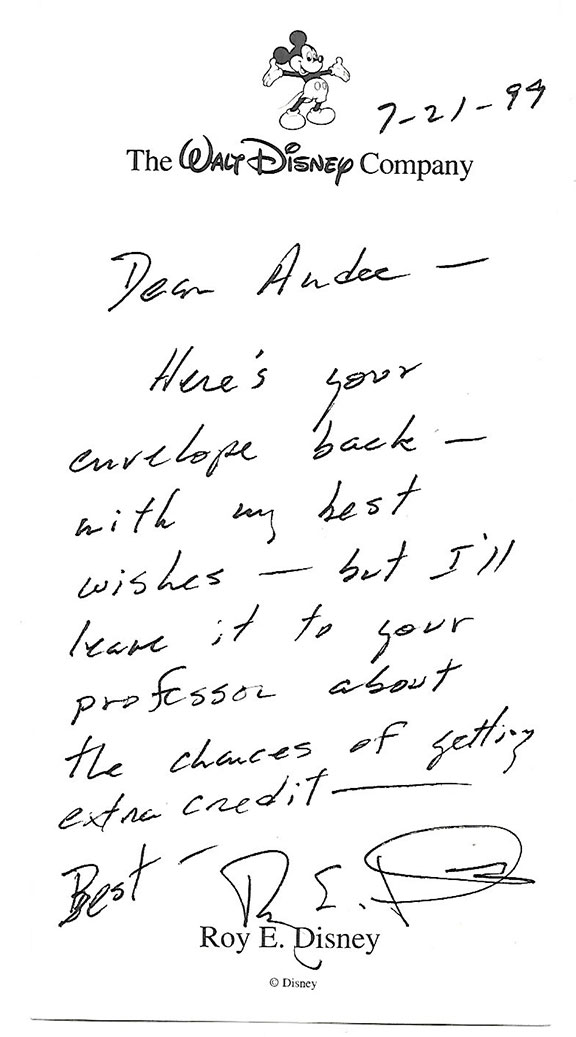 7-21-94
The Walt Disney Company
Dear Andee —
Here's your
envelope back —
with my best
wishes — but I'll
leave it to your
professor about
the chances of getting
extra credit —
Best —
Roy E. Disney
© Disney